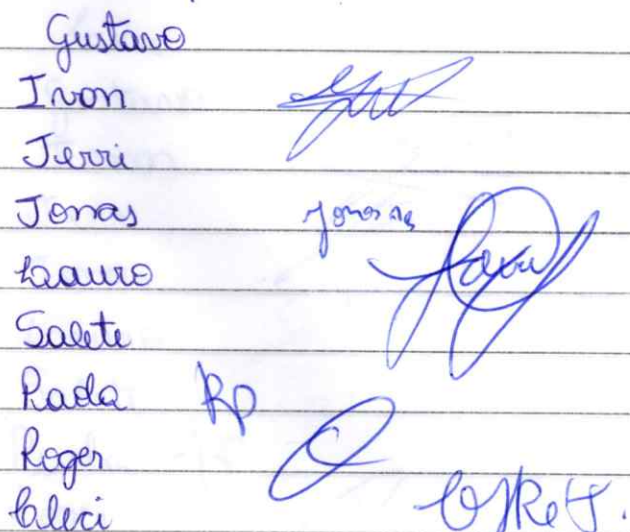 Gustavo
Ivon
Jerri
Jonas
Lauro
Salete
Rada RP
Roger
Cleci